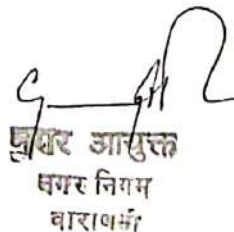 आयुक्त
नगर निगम
वाराणसी